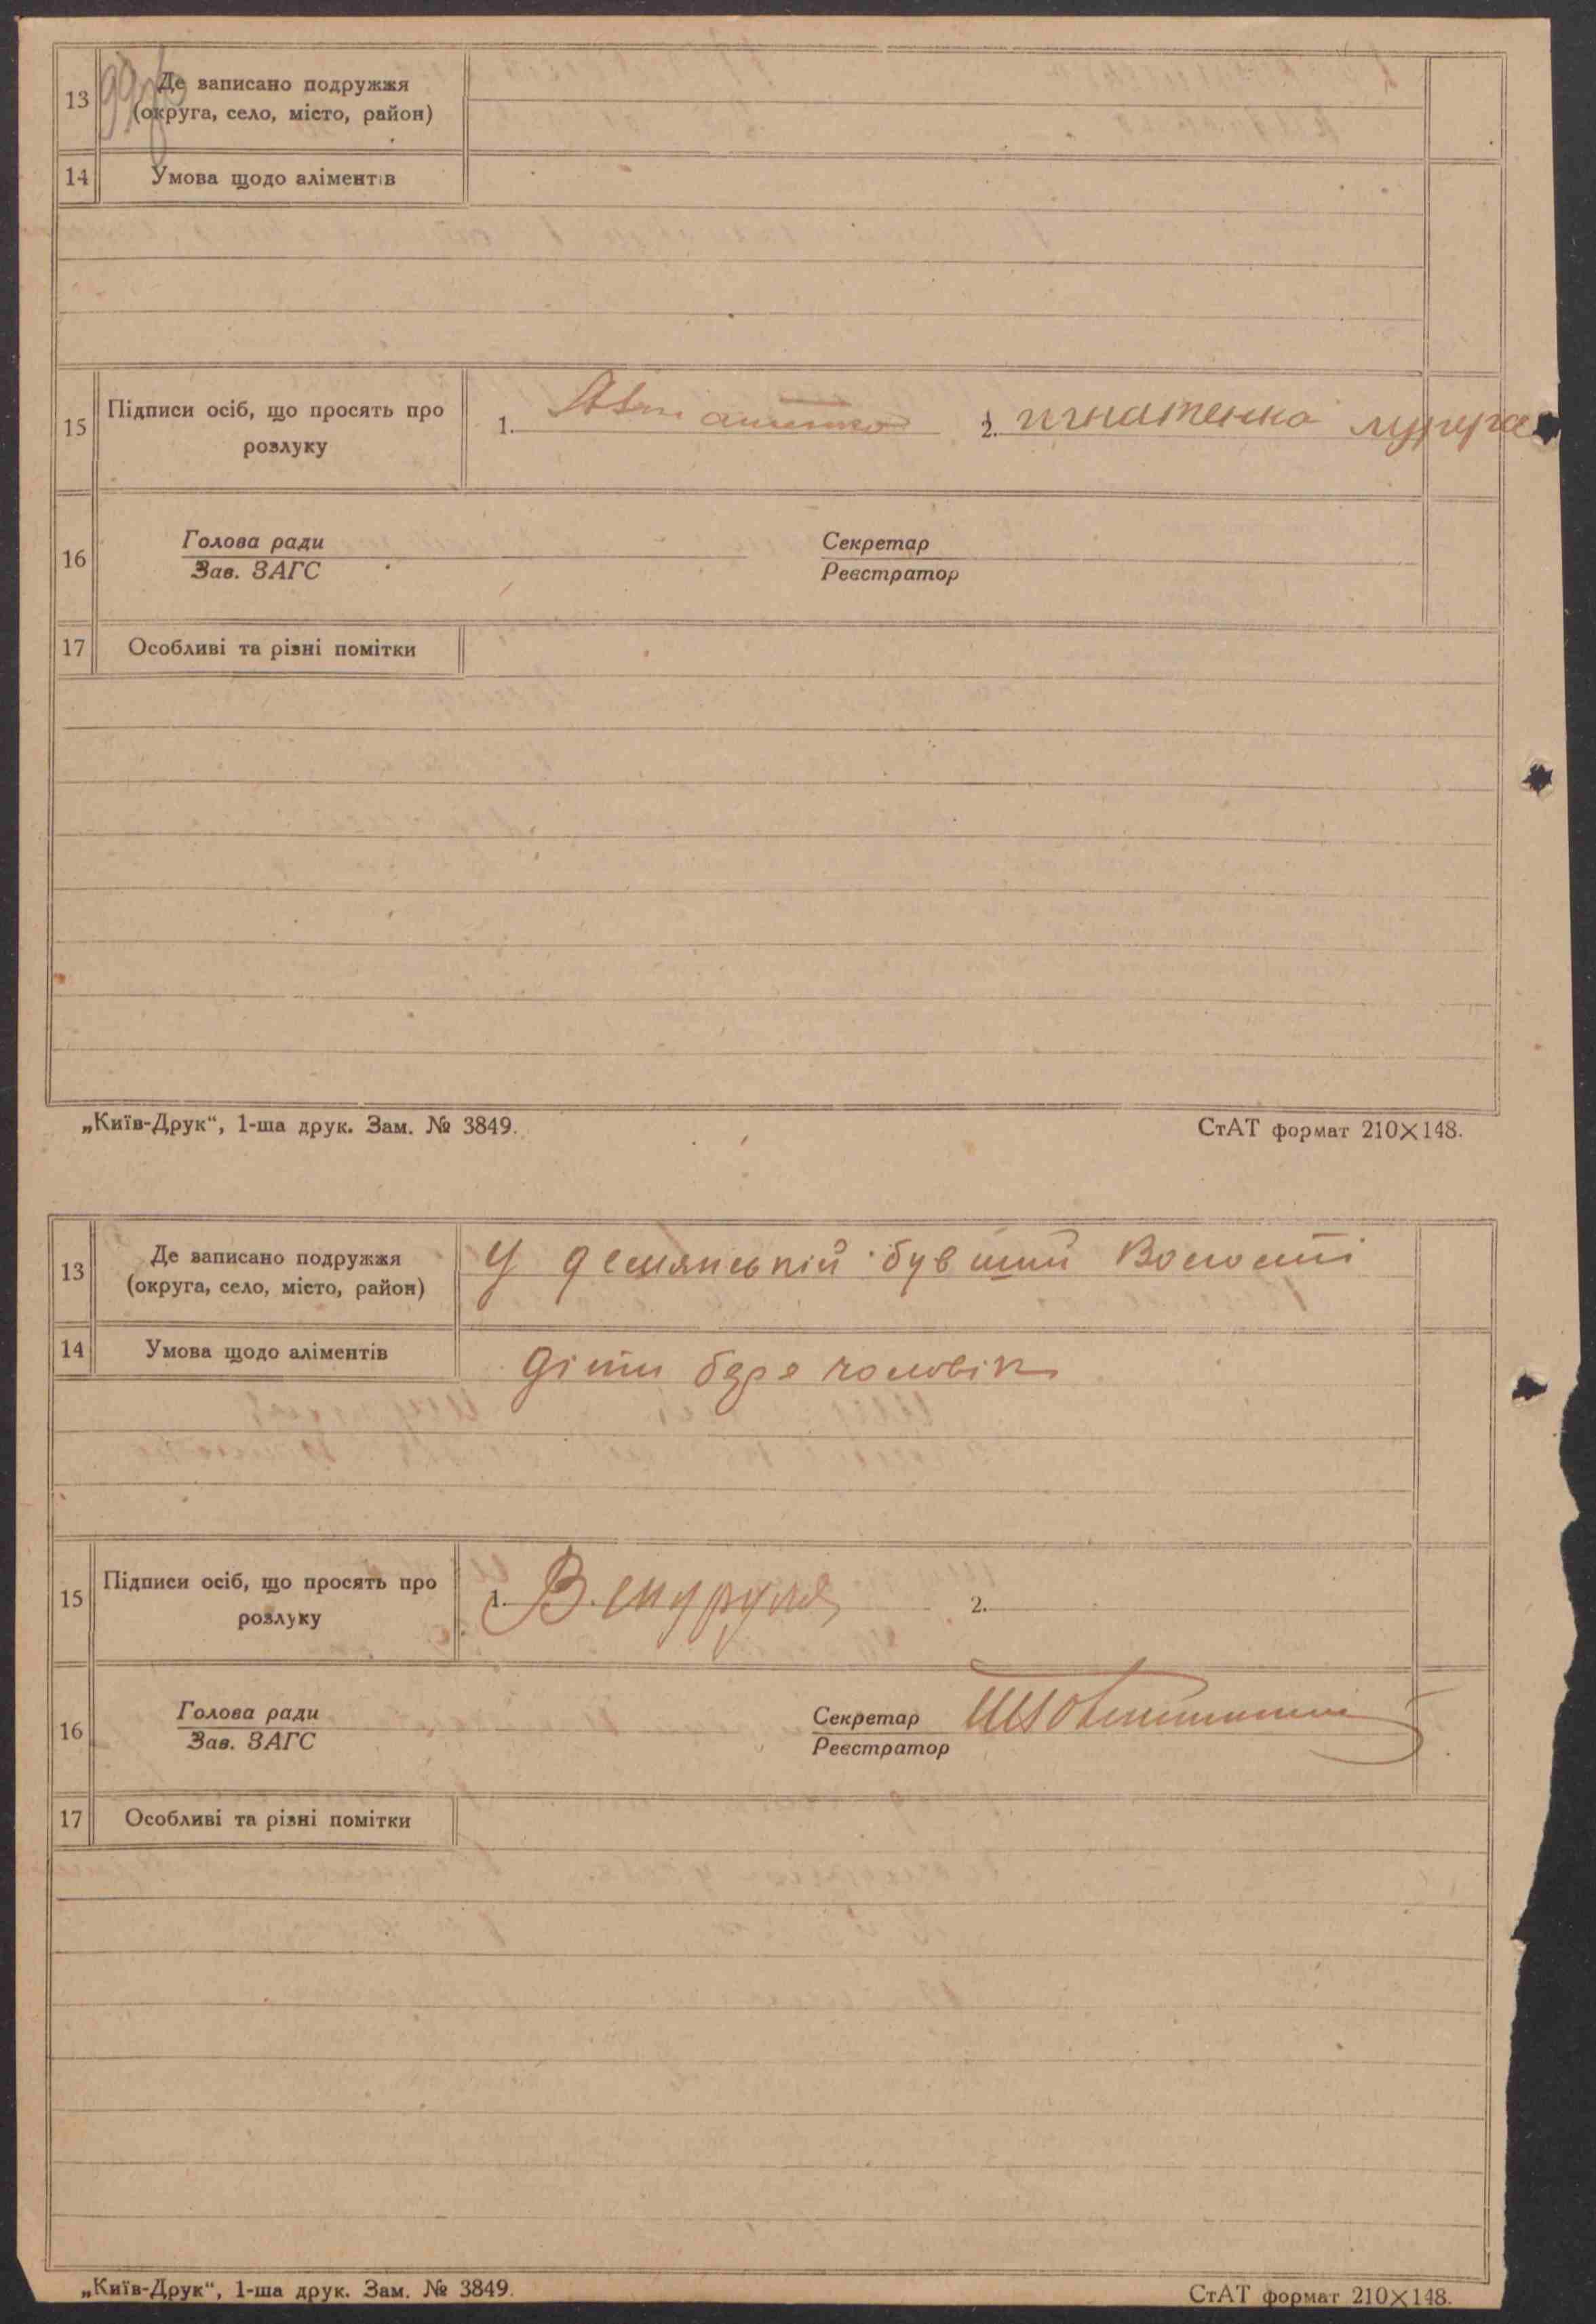 13 Де записано подружжя
(округа, село, місто, район)
14 Умова щодо аліментів
15 Підписи осіб, що просять про
розлуку
1. 2. игнатенко
16 Голова ради Секретар
Зав. ЗАГС Реєстратор
17 Особливі та різні помітки
„Київ-Друк“, 1-ша друк. Зам. № 3849. СтАТ формат 210×148.
13 Де записано подружжя
(округа, село, місто, район)
У демянській бувший Волости
14 Умова щодо аліментів
діти бере чоловік
15 Підписи осіб, що просять про
розлуку
1. В. 2.
16 Голова ради Секретар
Зав. ЗАГС Реєстратор
17 Особливі та різні помітки
„Київ-Друк“, 1-ша друк. Зам. № 3849. СтАТ формат 210×148.